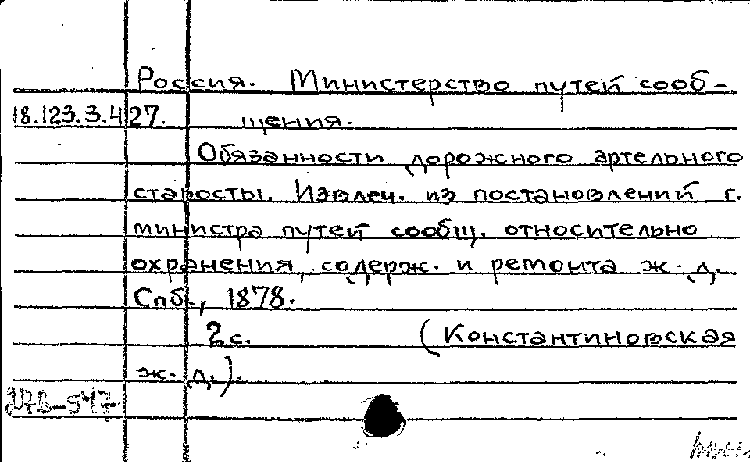 Россия. Министерство путей сооб-
18.123.3.427. щения.
Обязанности дорожного артельного
старосты. Извлеч. из постановлений г.
министра путей сообщ. относительно
охранения, содерж. и ремонта ж. д.
Спб., 1878.
2 с. (Константиновская
ж. д.).